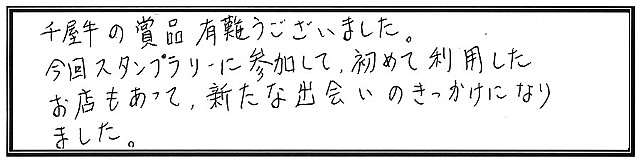 千屋牛の賞品有難うございました。
今回スタンプラリーに参加して、初めて利用した
お店もあって、新たな出会いのきっかけになり
ました。